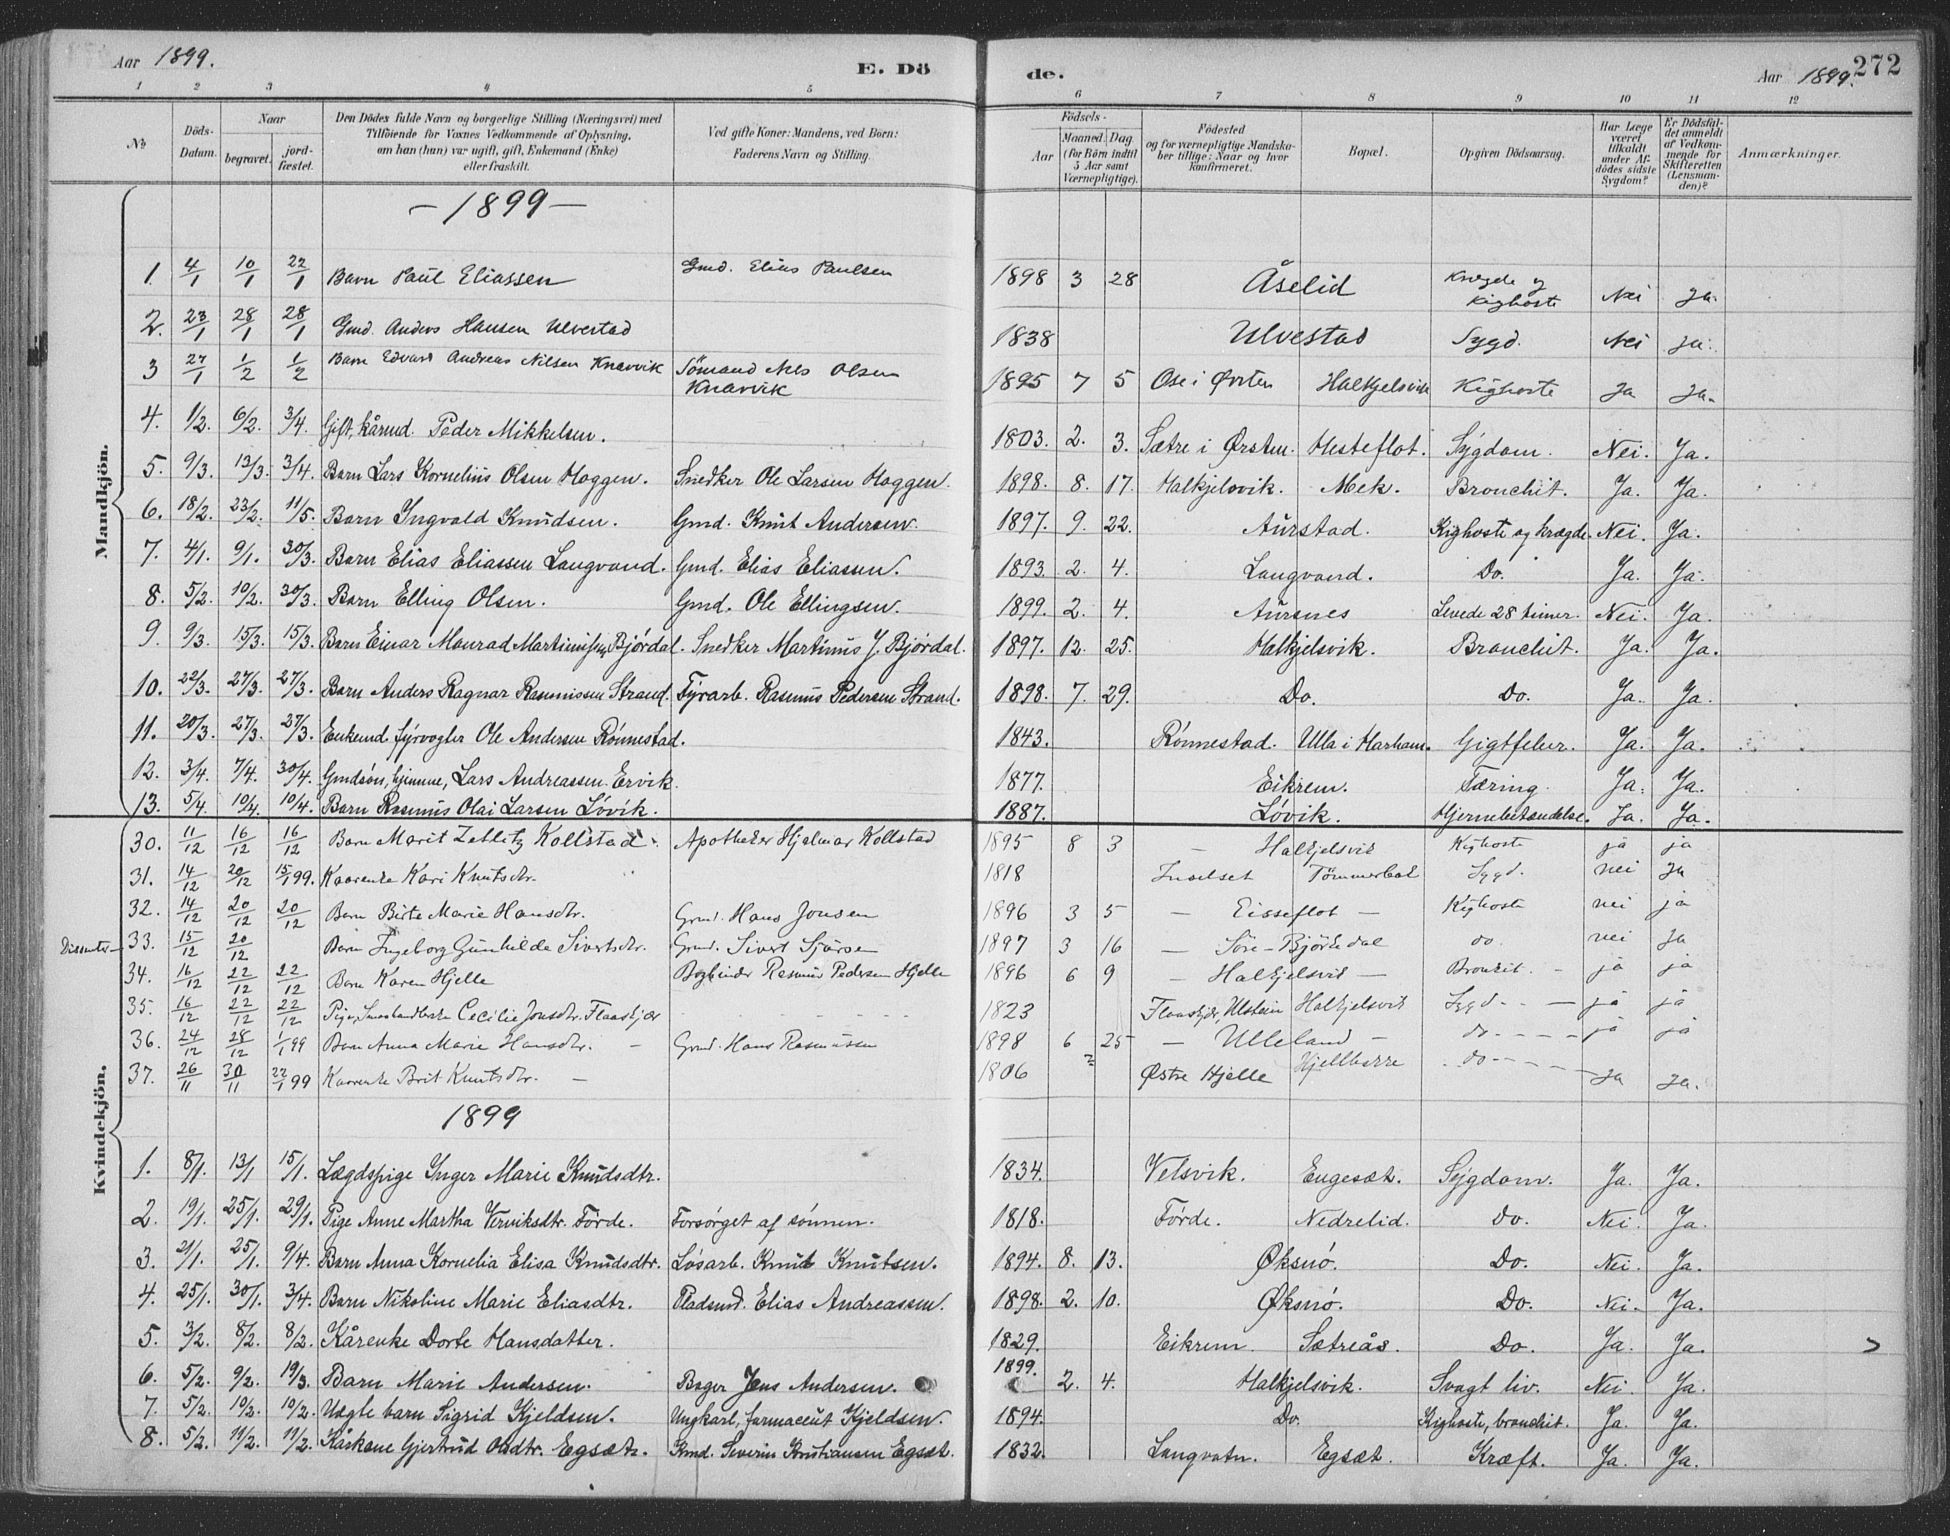 Aar 1899.
E. Dö
de.
Aar 1899.
272
1 2 3 4 5 6 7 8 9 10 11 12
No
Döds-Datum.
Naar
begravet.
jord-fæstet.
Den Dödes fulde Navn og borgerlige Stilling (Næringsvei) med
Tilföiende for Voxnes Vedkommende af Oplysning,
om han (hun) var ugift, gift, Enkemand (Enke)
eller fraskilt.
Ved gifte Koner: Mandens, ved Börn:
Faderens Navn og Stilling.
Födsels-
Aar
Maaned. Dag
(for Börn indtil
5 Aar samt
Værnepligtige).
Födested
og for værnepligtige Mandska-
ber tillige: Naar og hvor
konfirmeret.
Bopæl.
Opgiven Dödsaarsag.
Har Læge
været
tilkaldt
under Af-
dödes sidste
Sygdom?
Er Dödsfal-
det anmeldt
af Vedkom-
mende for
Skifteretten
(Lensman-
den)?
Anmærkninger.
Mandkjön.
- 1899 -
1. 4/1 10/1 22/1 Barn Paul Eliassen Gmd. Elias Paulsen 1898 3 28 Åselid Krægde og Kighoste Nei Ja.
2. 23/1 28/1 28/1 Gmd. Anders Hansen Ulvestad 1838 Ulvestad Sygd. Nei ja.
3 27/1 1/2 1/2 Barn Edvard Andreas Nilsen Knarvik Sömand Nils Olsen Knarvik 1895 7 5 Ose i Örsten Halkjelsvik Kighoste Ja Ja.
4. 1/2. 6/2. 3/4. Gift, kårmd. Peder Mikkelsen. 1803. 2. 3. Sætre i Örsten. Hesteflot. Sygdom. Nei. Ja.
5. 9/3. 13/3. 3/4. Barn Lars Kornelius Olsen Haggen. Snedker Ole Larsen Haggen. 1898. 8. 17. Halkjelsvik. Mek. Bronchit. Ja. Ja.
6. 18/2. 23/2. 11/5. Barn Ingvald Knudsen. Gmd. Knut Andersen. 1897. 9. 22. Aurstad. Kighoste og krægde. Nei. Ja.
7. 4/1. 9/1. 30/3. Barn Elias Eliassen Langvand. Gmd. Elias Eliassen. 1893. 2. 4. Langvand. Do. Ja. Ja.
8. 5/2. 10/2. 30/3. Barn Elling Olsen. Gmd. Ole Ellingsen. 1899. 2. 4. Aursnes Levede 28 timer. Nei. Ja.
9. 9/3. 15/3. 15/3. Barn Einar Monrad Martinussen Bjórdal. Snedker Martinus J. Bjórdal. 1897. 12. 25. Halkjelsvik. Bronchit. Ja. Ja.
10. 22/3. 27/3. 27/3. Barn Anders Ragnar Rasmussen Strand. Fyrarb. Rasmus Pedersen Strand. 1898. 7. 29. Do. Do. Ja. Ja.
11. 20/3. 27/3. 27/3. Enkemd. fyrvogter Ole Andersen Rónnestad. 1843. Rónnestad. Ulla i Harham. Gigtfeber. Ja. Ja.
12. 3/4. 7/4. 30/4. Gmdsón, hjemme, Lars Andreassen Ervik. 1877. Eikrem. Tæring. Ja. Ja.
13. 5/4. 10/4. 10/4. Barn Rasmus Olai Larsen Lóvik. 1887. Lóvik. Hjernebetændelse. Ja. Ja.
Kvindekjön.
30. 11/12 16/12 16/12 Barn Marit Zetlitz Kollstad. Apotheker Hjalmar Kollstad 1895 8 3 - Halkjelsvik Kighoste ja ja
31. 14/12 20/12 15/1 99. Kaarenke Kari Knutsdtr. 1818 Indelset Tömmerbak Sygd. nei Ja
32. 14/12 20/12 20/12 Barn Birte Marie Hansdtr. Grmd. Hans Jonsen 1896 3 5 - Eisseflot - Kighoste nei ja
Dissenter - 33. 15/12 20/12 Barn Ingeborg Gunhilde Sivertsdtr. Grmd. Sivert Sjurse 1897 3 16 - Söre-Björkdal do. nei Ja
34. 16/12 22/12 22/12 Barn Karen Hjelle Bogbinder Rasmus Pedersen Hjelle 1896 6 9 - Halkjelsvik - Bronkit. - ja ja
35. 16/12 22/12 22/12 Pige, Smaahandlerske Cecilie Jonsdtr. Flaaskjær 1823 Flaaskjær, Ulstein Halkjelsvik Sygd - - - ja ja
36. 24/12 28/12 1/1 99 Barn Anna Marie Hansdtr. - Grmd. Hans Rasmussen 1898 6 25 - Ulleland - do - - - - ja ja
37. 26/11 30/11 22/1 99 Kaarenke Brit Knutsdtr. - 1806 Østre Hjelle Hjellbakke do - - - - Ja Ja.
1899
1. 8/1. 13/1 15/1. Lægdspige Inger Marie Knudsdtr. 1834. Velsvik. Engesæt. Sygdom. Ja. Ja.
2. 19/1. 25/1. 29/1. Pige Anne Martha Verviksdtr. Förde. Forsörget af sönnen. 1818. Förde. Nedrelid. Do. Nei. Ja.
3. 21/1. 25/1. 9/4. Barn Anna Kornelia Elisa Knudsdtr. Lósarb. Knut Knutsen. 1894. 8. 13. Øksnó. Do. Nei. Ja.
4. 25/1. 30/1. 3/4. Barn Nikoline Marie Eliasdtr. Pladsmd. Elias Andreassen. 1898. 2. 10. Øksnó. Do. Nei. Ja.
5. 3/2. 8/2. 8/2. Kårenke Dorte Hansdatter. 1829. Eikrem. Sætreås. Do. Ja. Ja.
6. 5/2. 9/2. 19/3. Barn Marie Andersen. Bager Jens Andersen. 1899. 2. 4. Halkjelsvik. Svagt liv. Nei. Ja.
7. 5/2. 10/2. 10/2. Uægte barn Sigrid Kjeldsen. Ungkarl, farmaceut Kjeldsen. 1894. Do. Kighoste, bronchit. Ja. Ja.
8. 5/2. 11/2. 11/2. Kårkone Gjertrud Olsdtr. Egsæt. Kmd. Severin Kristiansen Egsæt. 1832. Langvatn. Egsæt. Kræft. Ja. Ja.